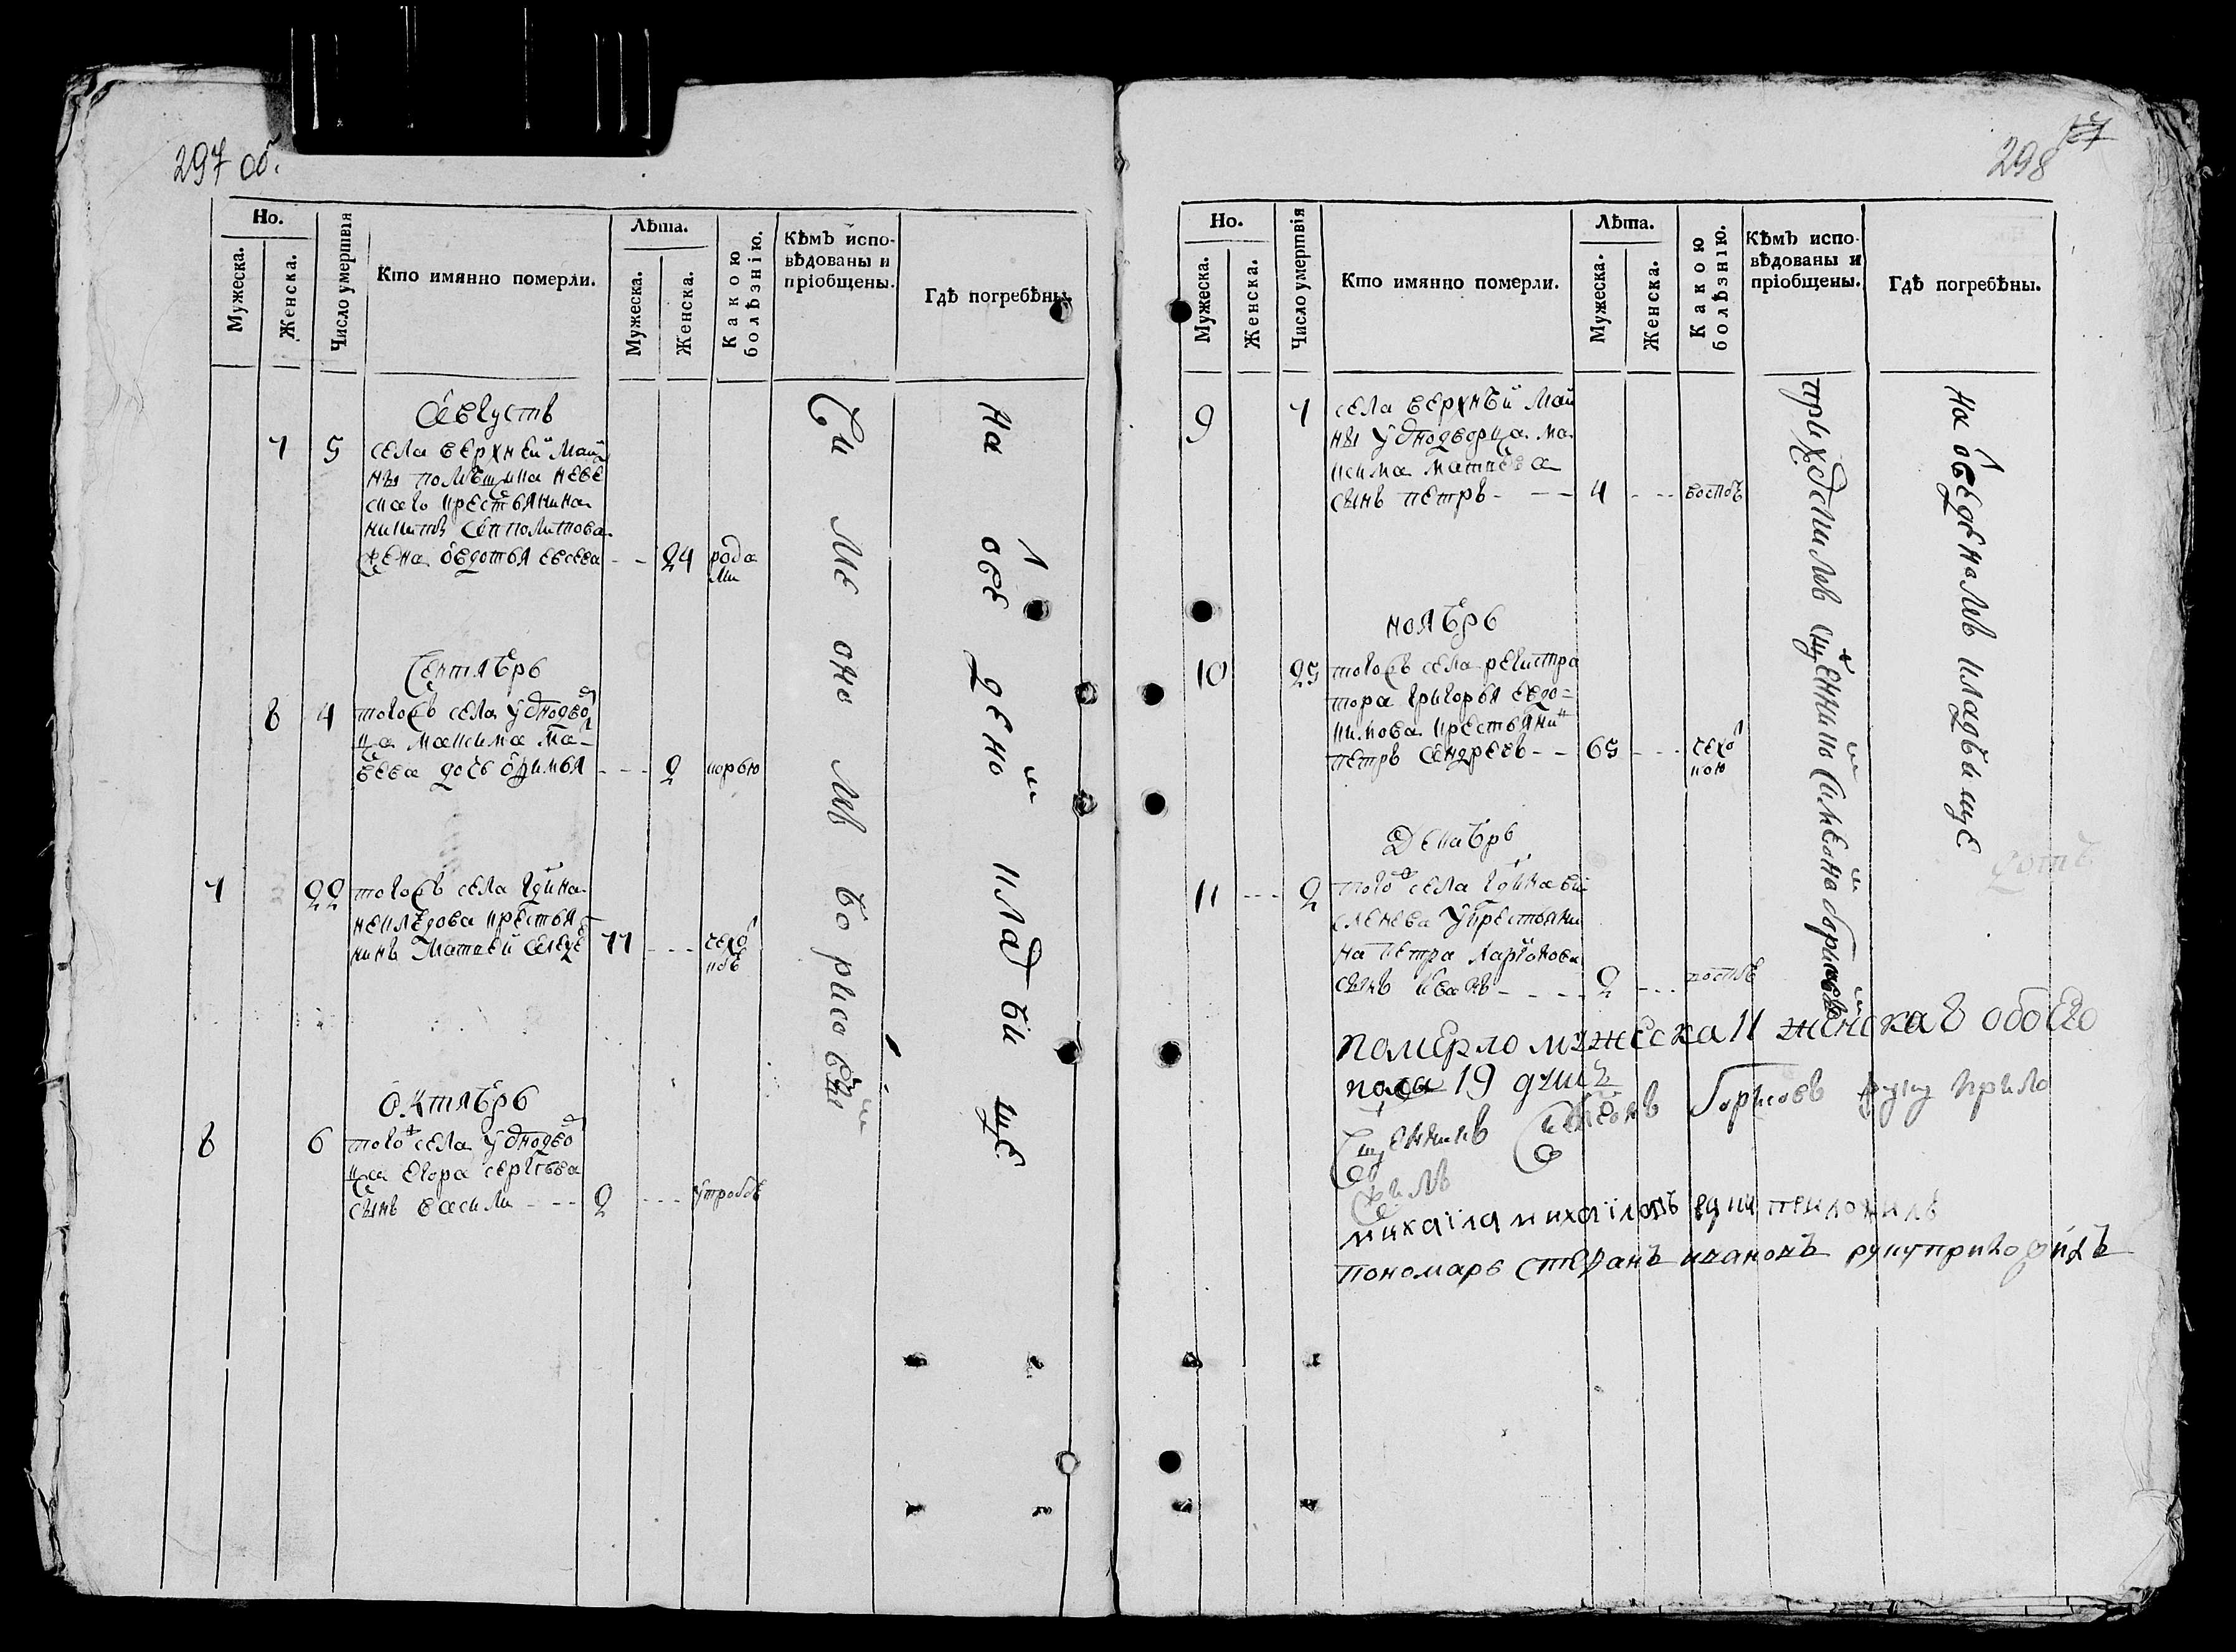 297 об.
Но.
Мужеска.
Женска.
Число умертвія
Кто имянно померли.
Лѣта.
Мужеска.
Женска.
Какою болѣзнію.
Кѣмъ испо-
вѣдованы и
пріобщены.
Гдѣ погребѣны.
Августъ
7 5 села верхней май
ны помѣщика
скаго крестьянина
никиты
жена овдотья евсева - - 24 рода
ми
Сентябрь
8 4 тогожъ села удновод
ца максима ма-
вѣева дочь - - - 2 корью
7 22 тогожъ села
крестья
нинъ матвей 77 - - - чехо
Октябрь
8 6 того села уднодво
ца егора сергѣева
сынъ васили - - - 2 - - - утробою
Си ме оно мъ бо рисо вы
на отве дено м клад би ще
298
Но.
Мужеска.
Женска.
Число умертвія
Кто имянно померли.
Лѣта.
Мужеска.
Женска.
Какою болѣзнію.
Кѣмъ испо-
вѣдованы и
пріобщены.
Гдѣ погребѣны.
9 7 села верхнѣй май
ны уднодворца ма
ксима матвѣва
сынъ петръ - - - 4 - - - воспою
ноябрь
10 25 тогожъ села регистра
тора григорья евдо=
кимова крестьяни
петръ андреевъ - - 65 - - - чехо
ною
Декабрь
11 - - - 2 того села
крестьяни
на петра ларионова
сынъ иванъ - - - - 2 - - - воспою
приходскимъ священнико симеоно борисовы
на отведеномъ кладбище
померло мужеска 11 женска 8 обоего
пола 19 душъ
Священникъ Симеонъ Борисовъ руку прило
жилъ
михаіла михаіловъ руку приложилъ
пономарь степанъ ивановъ руку приложилъ